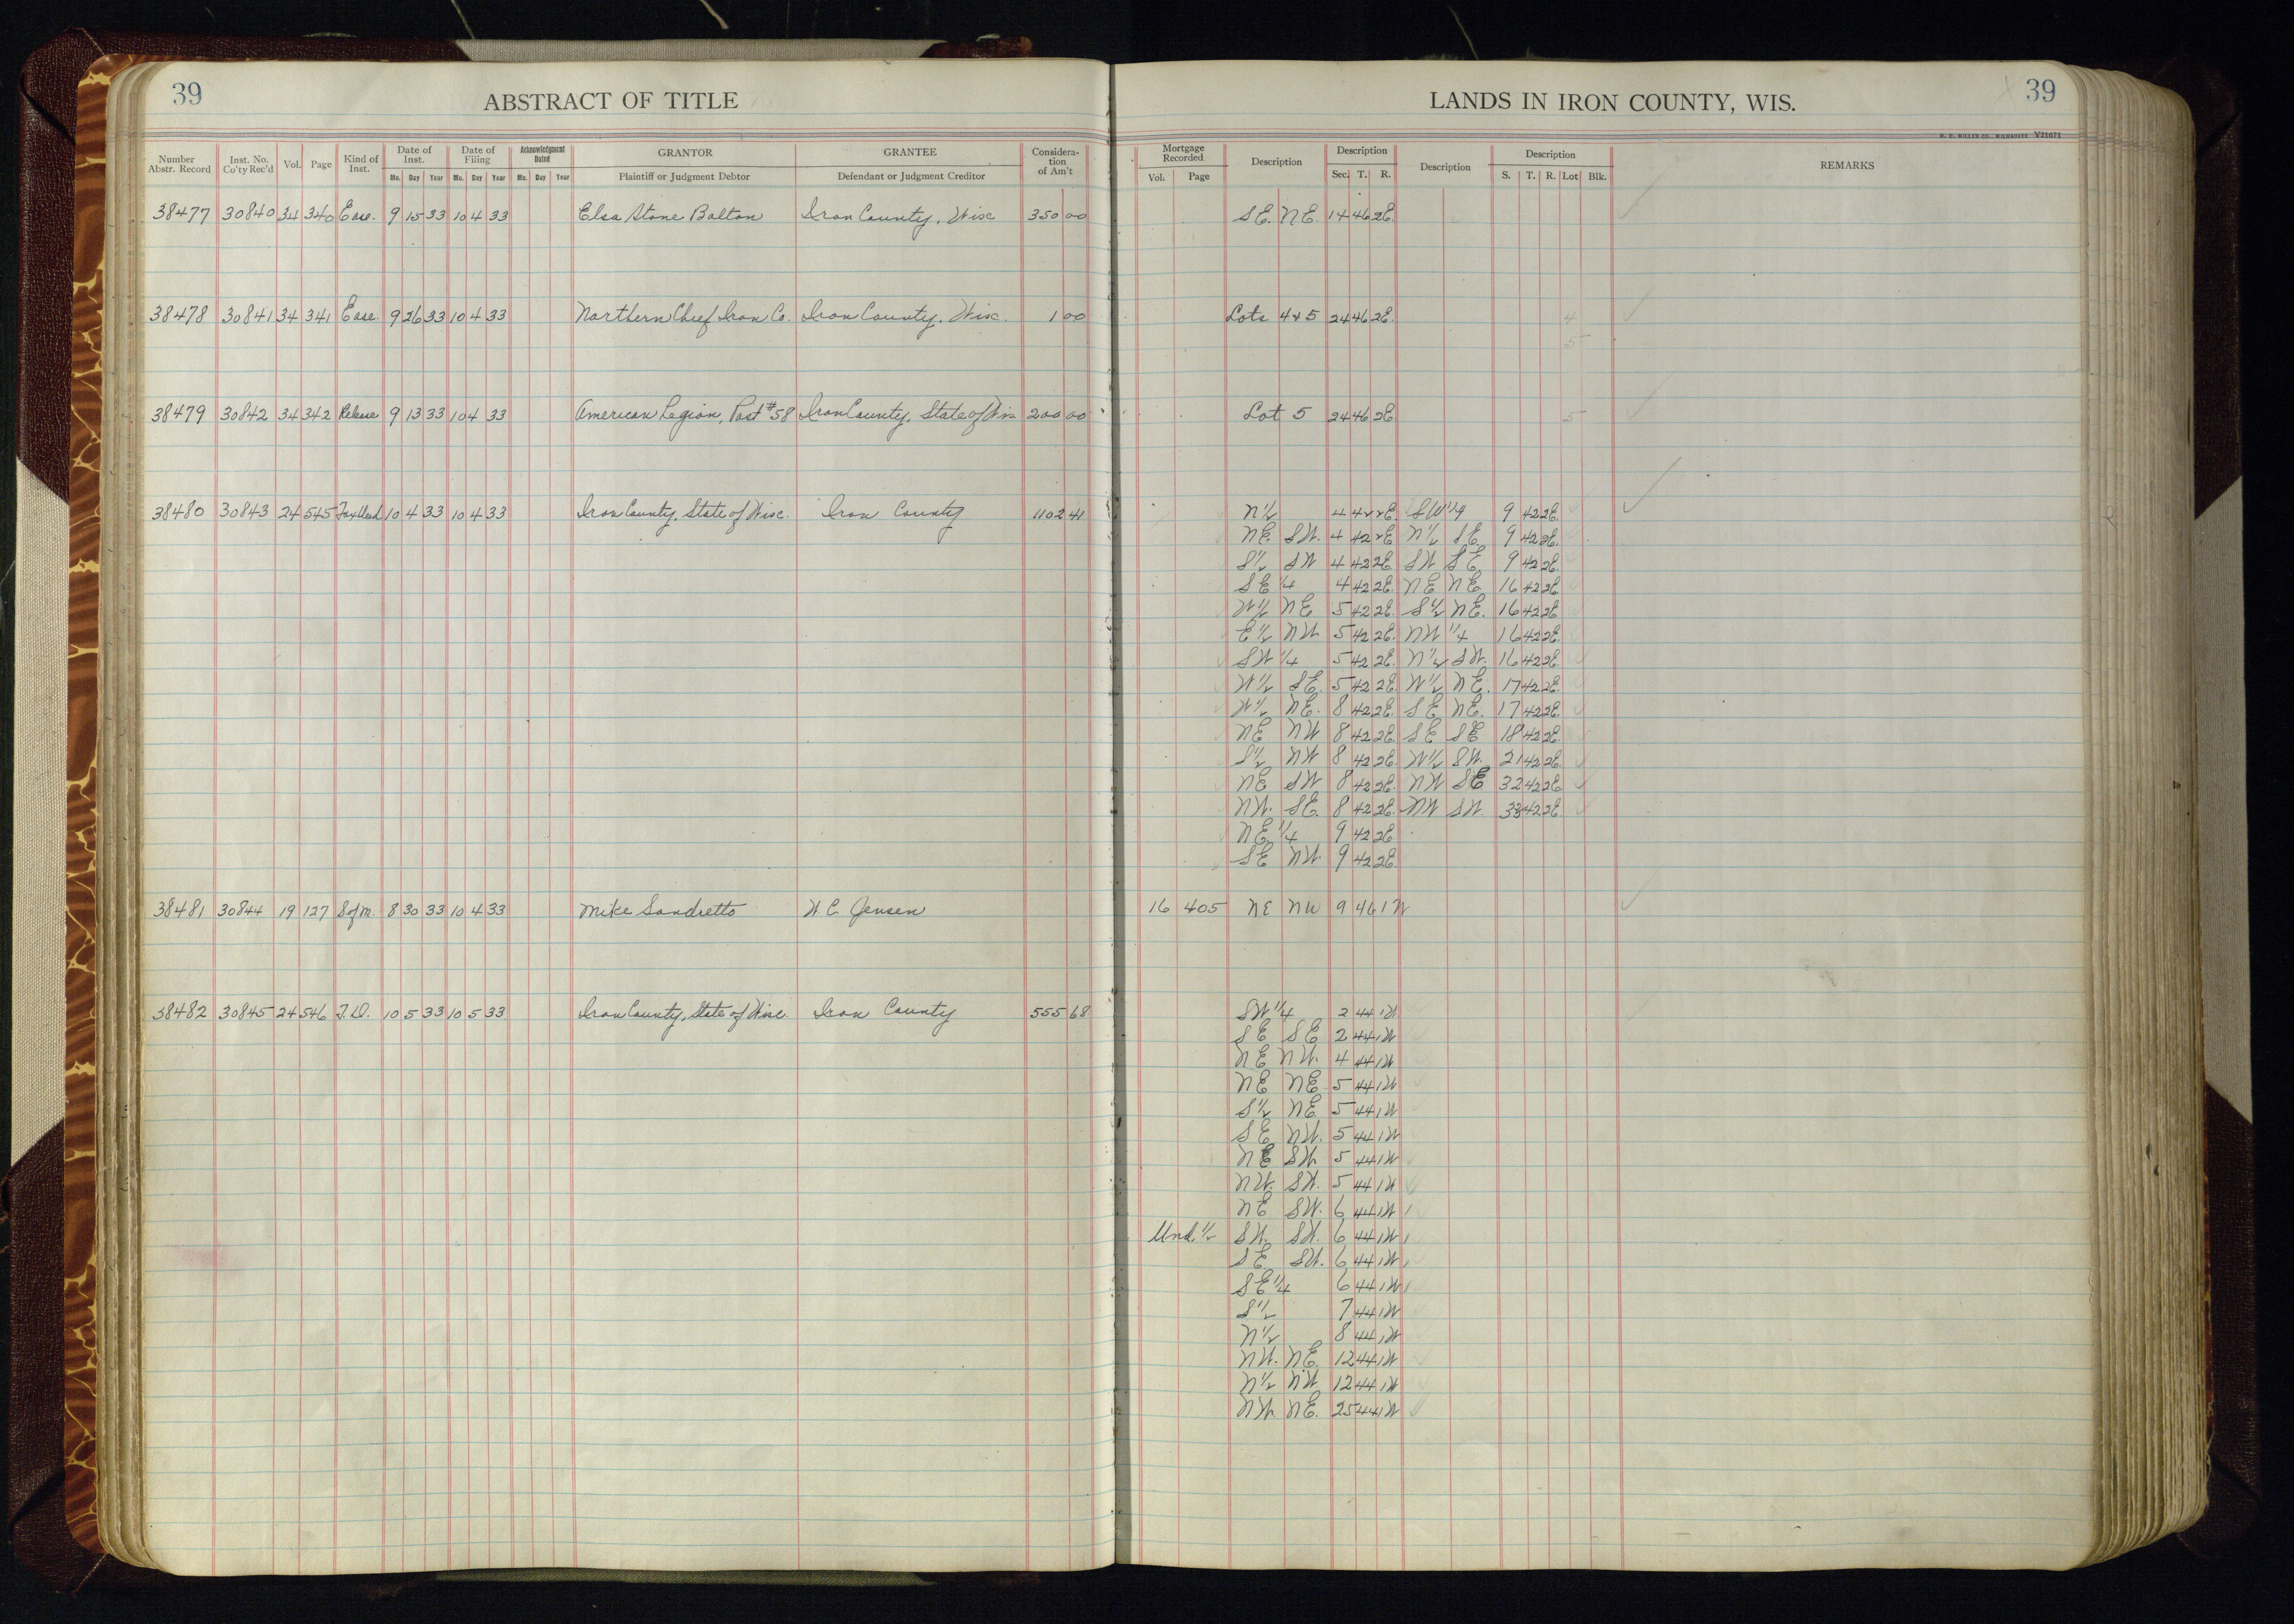 39
ABSTRACT OF TITLE
LANDS IN IRON COUNTY, WIS.
39
H. C. MILLER CO., MILWAUKEE V21071
Number Abstr. Record Inst. No. Co'ty Rec'd Vol. Page Kind of Inst. Date of Inst. Mo. Day Year Date of Filing Mo. Day Year Acknowledgment Dated Mo. Day Year GRANTOR Plaintiff or Judgment Debtor GRANTEE Defendant or Judgment Creditor Consideration of Am't Mortgage Recorded Vol. Page Description Description Sec. T. R. Description Description S. T. R. Lot Blk. REMARKS
38477 30840 34 340 Ease. 9 15 33 10 4 33 Elsa Stone Bolton Iron County, Wisc 350 00 SE. NE. 14 46 2E.
38478 30841 34 341 Ease. 9 26 33 10 4 33 Northern Chief Iron Co. Iron County, Wisc. 1 00 Lots 4 & 5 24 46 2E. 4
5
38479 30842 34 342 Release 9 13 33 10 4 33 American Legion, Post #58 Iron County, State of Wis 200 00 Lot 5 24 46 2E. 5
38480 30843 24 545 Tax Deed 10 4 33 10 4 33 Iron County, State of Wisc. Iron County 1102 41 N½ 4 42 2E. SW¼ 9 42 2E.
NE. SW. 4 42 2E N½ SE. 9 42 2E.
S½ SW 4 42 2E SW SE 9 42 2E.
SE ¼ 4 42 2E. NE NE 16 42 2E
W½ NE 5 42 2E. S½ NE. 16 42 2E
E½ NW 5 42 2E. NW ¼ 16 42 2E.
SW ¼ 5 42 2E. N½ SW. 16 42 2E.
W½ SE. 5 42 2E W½ NE. 17 42 2E.
W½ NE. 8 42 2E. SE NE. 17 42 2E.
NE NW 8 42 2E. SE SE 18 42 2E.
S½ NW 8 42 2E. W½ SW. 21 42 2E.
NE SW 8 42 2E. NW SE 32 42 2E
NW. SE. 8 42 2E. NW SW. 33 42 2E.
NE ¼ 9 42 2E
SE NW. 9 42 2E.
38481 30844 19 127 S of M. 8 30 33 10 4 33 Mike Sandretto W. C. Jensen 16 405 NE NW 9 46 1 W
38482 30845 24 546 T.D. 10 5 33 10 5 33 Iron County, State of Wisc. Iron County 555 68 SW ¼ 2 44 1W
SE SE 2 44 1W
NE NW. 4 44 1W
NE NE 5 44 1W
S½ NE. 5 44 1W
SE NW. 5 44 1W
NE SW 5 44 1W
NW. SW. 5 44 1W
NE SW. 6 44 1W
Und. ½ SW. SW. 6 44 1W
SE SW. 6 44 1W
SE ¼ 6 44 1W
S½ 7 44 1W
N½ 8 44 1W
NW. NE. 12 44 1W
N½ NW. 12 44 1W
NW. NE. 25 44 1W